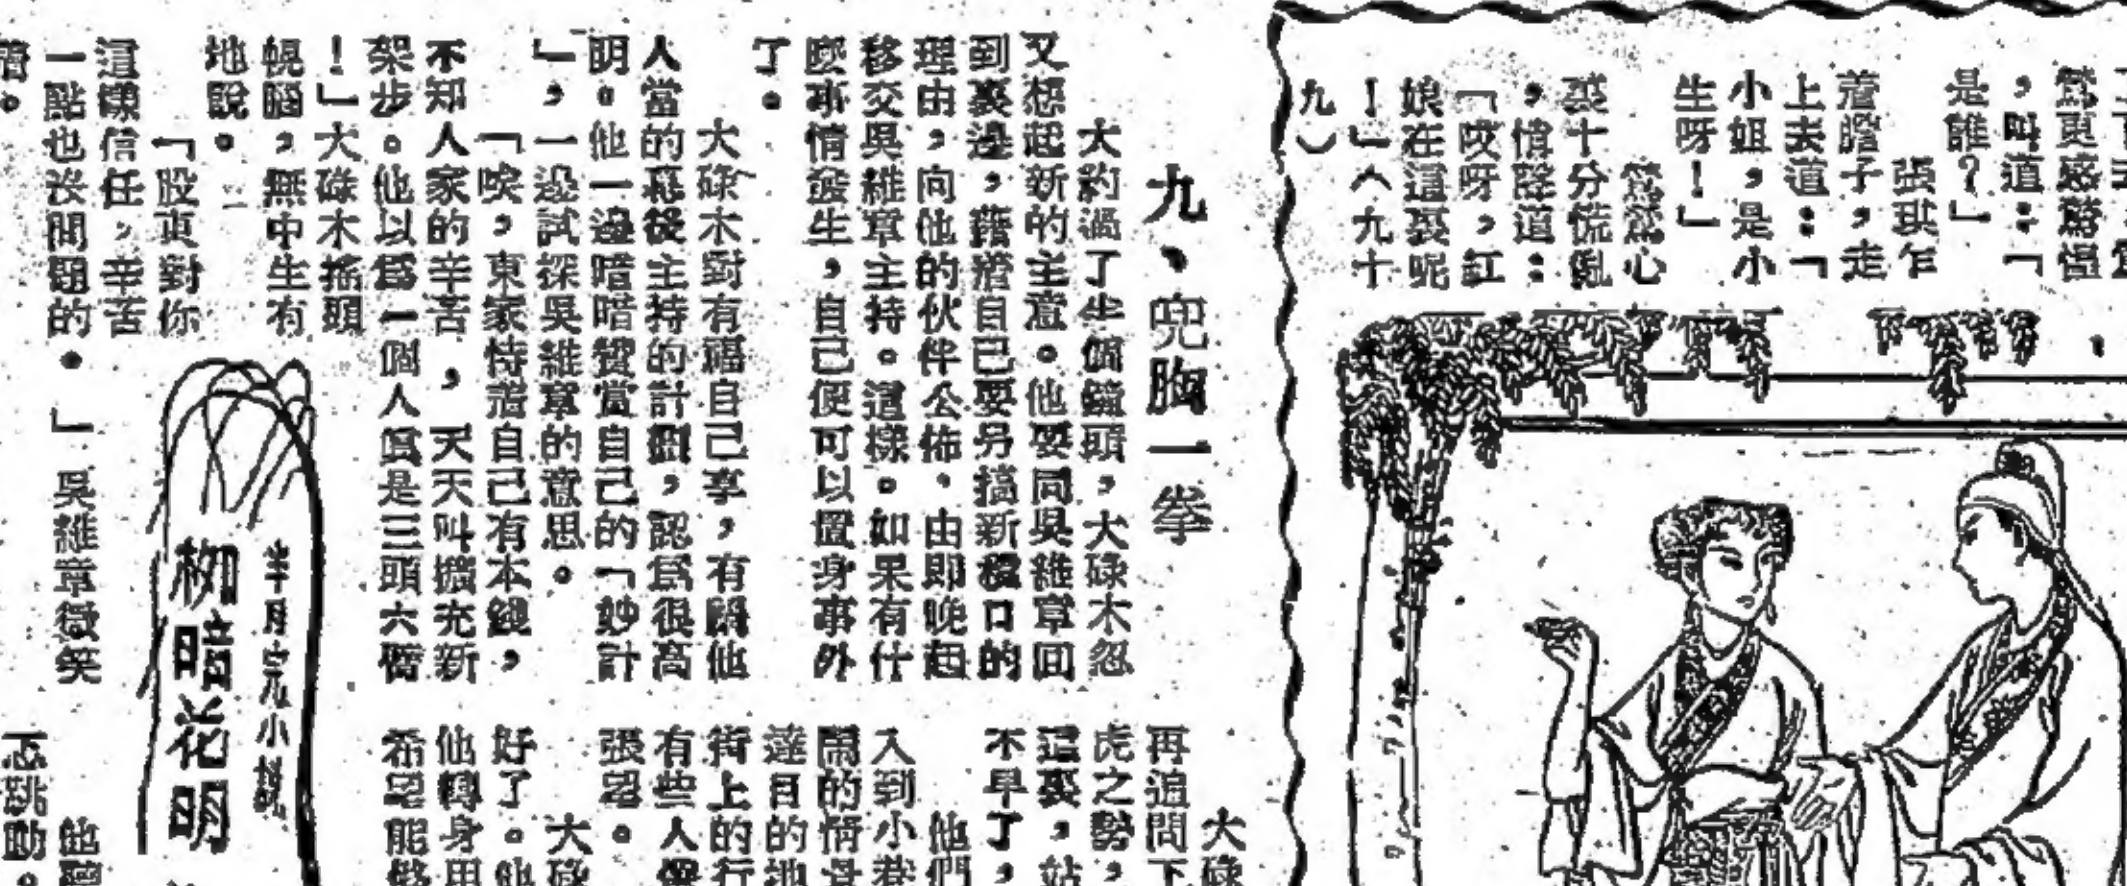 鶯更感驚惶
，叫道：「
是誰？」
張珙乍
着膽子，走
上去道：「
小姐，是小
生呀！」
鶯鶯心
裘十分慌亂
，悄聲道：
「哎呀，紅
娘在這裘呢
！」（九十
九）
九、兜胸一拳
大約過了半個鐘頭，大碌木忽
又想起新的主意。他要同吳維章回
到裏邊，藉着自己要另搞新欄口的
理由，向他的伙伴公佈，由即晚起
移交吳維章主持。這樣。如果有什
麼事情發生，自己便可以置身事外
了。
大碌木對有福自己享，有禍他
人當的幕後主持的計劃，認爲很高
明。他一邊暗暗贊賞自己的「妙計
」，一邊試探吳維章的意思。
「唉，東家恃着自己有本錢，
不知人家的辛苦，天天叫擴充新
架步。他以爲一個人眞是三頭六臂
！」大碌木搖頭
幌腦，無中生有
地說。
「股東對你
這樣信任，辛苦
一點也沒問題的。」吳維章微笑
着。
半月完小說
柳暗花明
大碌
再追問下
虎之勢，
這裏，站
不早了，
他們
入到小巷
鬧的情景
達目的地
街上的行
有些人僅
張望。
大碌
好了。他
他轉身用
希望能夠
他聽
忑跳動。